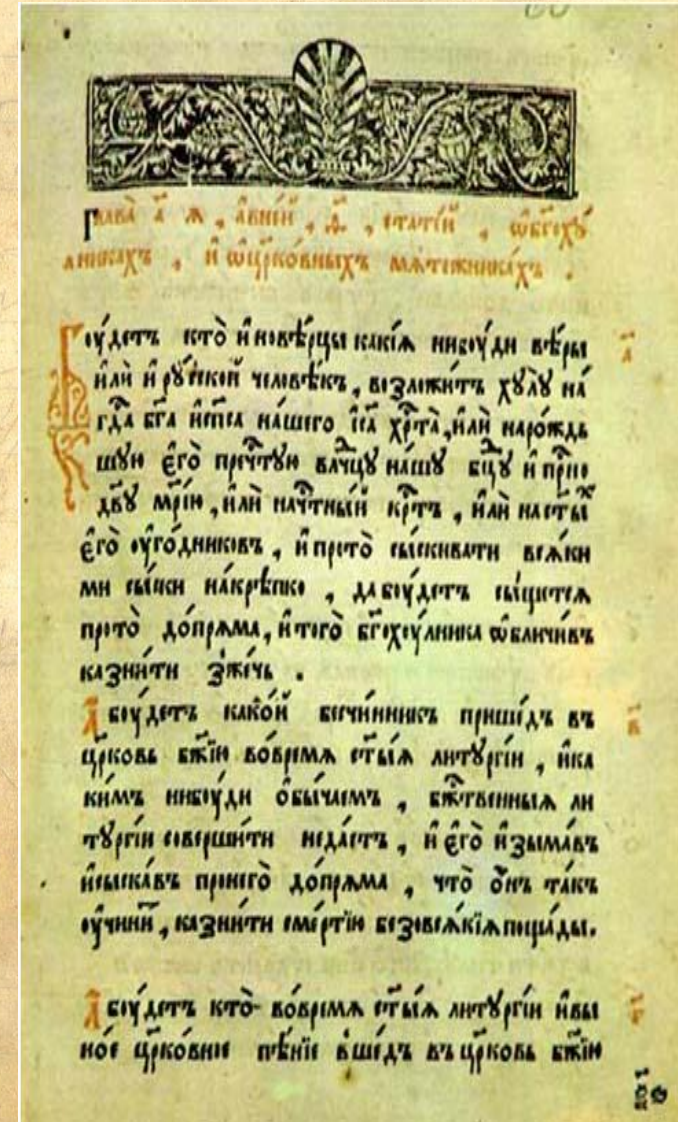 Глава а҃ я , а҆в не́й , д҃ , статі́й , ѡ҆бг҃оху́
лникахъ , и҆ ѡ҆цр҃ко́вныхъ мѧте́жникахъ .
Бꙋ́детъ кто̀ и҆новѣ́рцы какі́ѧ нибꙋ́ди вѣ́ры
и҆лѝ и҆рꙋ́ской человѣ́къ , возложи́тъ хꙋлꙋ̀ на́
гдⷭ҇а бг҃а и҆сп҃са на́шего і҆с҃а хрⷭ҇та̀ , и҆лѝ наро́ждь
шꙋю є҆го̀ пречⷭ҇тꙋю влⷣчцꙋ на́шꙋ бцⷣꙋ и҆ прⷭ҇но
дв҃ꙋ мр҃і́ю , и҆лѝ начⷭ҇тны́й крⷭ҇тъ , и҆лѝ наст҃ы́ⷯ
є҆го̀ ᲂу҆го́дниковъ , и҆ прото̀ сы́скивати всѧ́ки
ми сы́ски на́крѣпко , да бꙋ́детъ сы́щетсѧ
прото̀ до́прѧма , и҆того̀ бг҃охꙋ́лника ѡ҆бличи́въ
казни́ти зже́чь .
А҆ бꙋ́детъ како́й безчи́нникъ прише́дъ въ
цр҃ковь бж҃їю во́времѧ ст҃ы́ѧ литꙋргі́и , и҆ка
ки́мъ нибꙋ́ди ѻ҆бы́чаемъ , бжⷭ҇твенныѧ ли
тꙋргі́и соверши́ти неда́стъ , и҆ є҆го̀ и҆зыма́въ
и҆сыска́въ пронего̀ до́прѧма , что̀ ѻ҆́нъ та́къ
ᲂу҆чини́т , казни́ти сме́ртїю безовсѧ́кїѧ поща́ды .
А҆ бꙋ́детъ кто̀ во́времѧ ст҃ы́ѧ литꙋргі́и и҆ вы
но́е цр҃ко́вное пѣ́нїе вше́дъ въ цр҃ковь бж҃їю
а҃
в҃
г҃